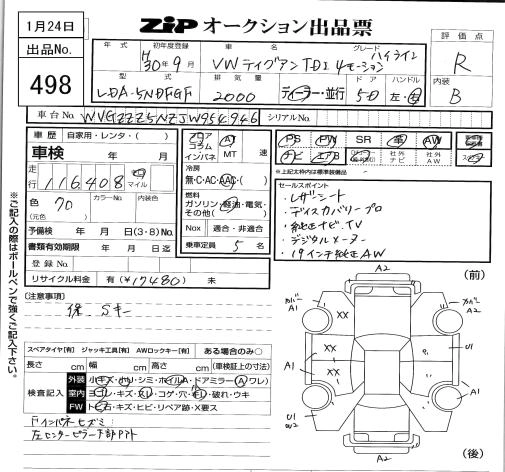 1月24日
ZIPオークション出品票
評価点
R
出品No.
498
年式
初年度登録
車名
グレード
H30年9月
VWティグアンTDI 4モーション
ハイライン
型式
排気量
ドア
ハンドル
内装
LDA-5NDFGF
2000
ディーラー・並行
5D
左・右
B
車台No.
WVGZZZ5NZJW954946
シリアルNo.
車歴
自家用・レンタ・( )
車検
年 月
走行
116408
マイル
色
カラーNo.
内装色
(元色)
予備検 年 月 日(3・8)No.
書類有効期限 年 月 日迄
登録No.
リサイクル料金 有(¥17480) 未
フロア
コラム
インパネ
AT
MT
速
冷房
無・C・AC・AAC・( )
燃料
ガソリン・軽油・電気・
その他( )
Nox 適合・非適合
乗車定員 5 名
PS PW SR 革 AW
ナビ エアB
社外ナビ
社外AW
※上記太枠内は標準装備品
セールスポイント
・レザーシート
・ディスカバリープロ
・純正ナビ・TV
・デジタルメーター
・19インチ純正AW
※ご記入の際はボールペンで強くご記入下さい。
[注意事項]
保、Sキー
スペアタイヤ[有] ジャッキ工具[有] AWロックキー[有] ある場合のみ○
長さ cm 幅 cm 高さ cm (車検証上の寸法)
検査記入
外装 小キズ・小U・シミ・ホイルA・ドアミラー(A ワレ)
室内 ヨゴレ・キズ・スレ・コゲ・穴・モレ・破れ・ウキ
FW トビ石・キズ・ヒビ・リペア跡・X要ス
左センターピラー下部
A2
(前)
カバーA1
カバーA2
XX
XX
XX
U1
A1
A1
U1
A2
(後)